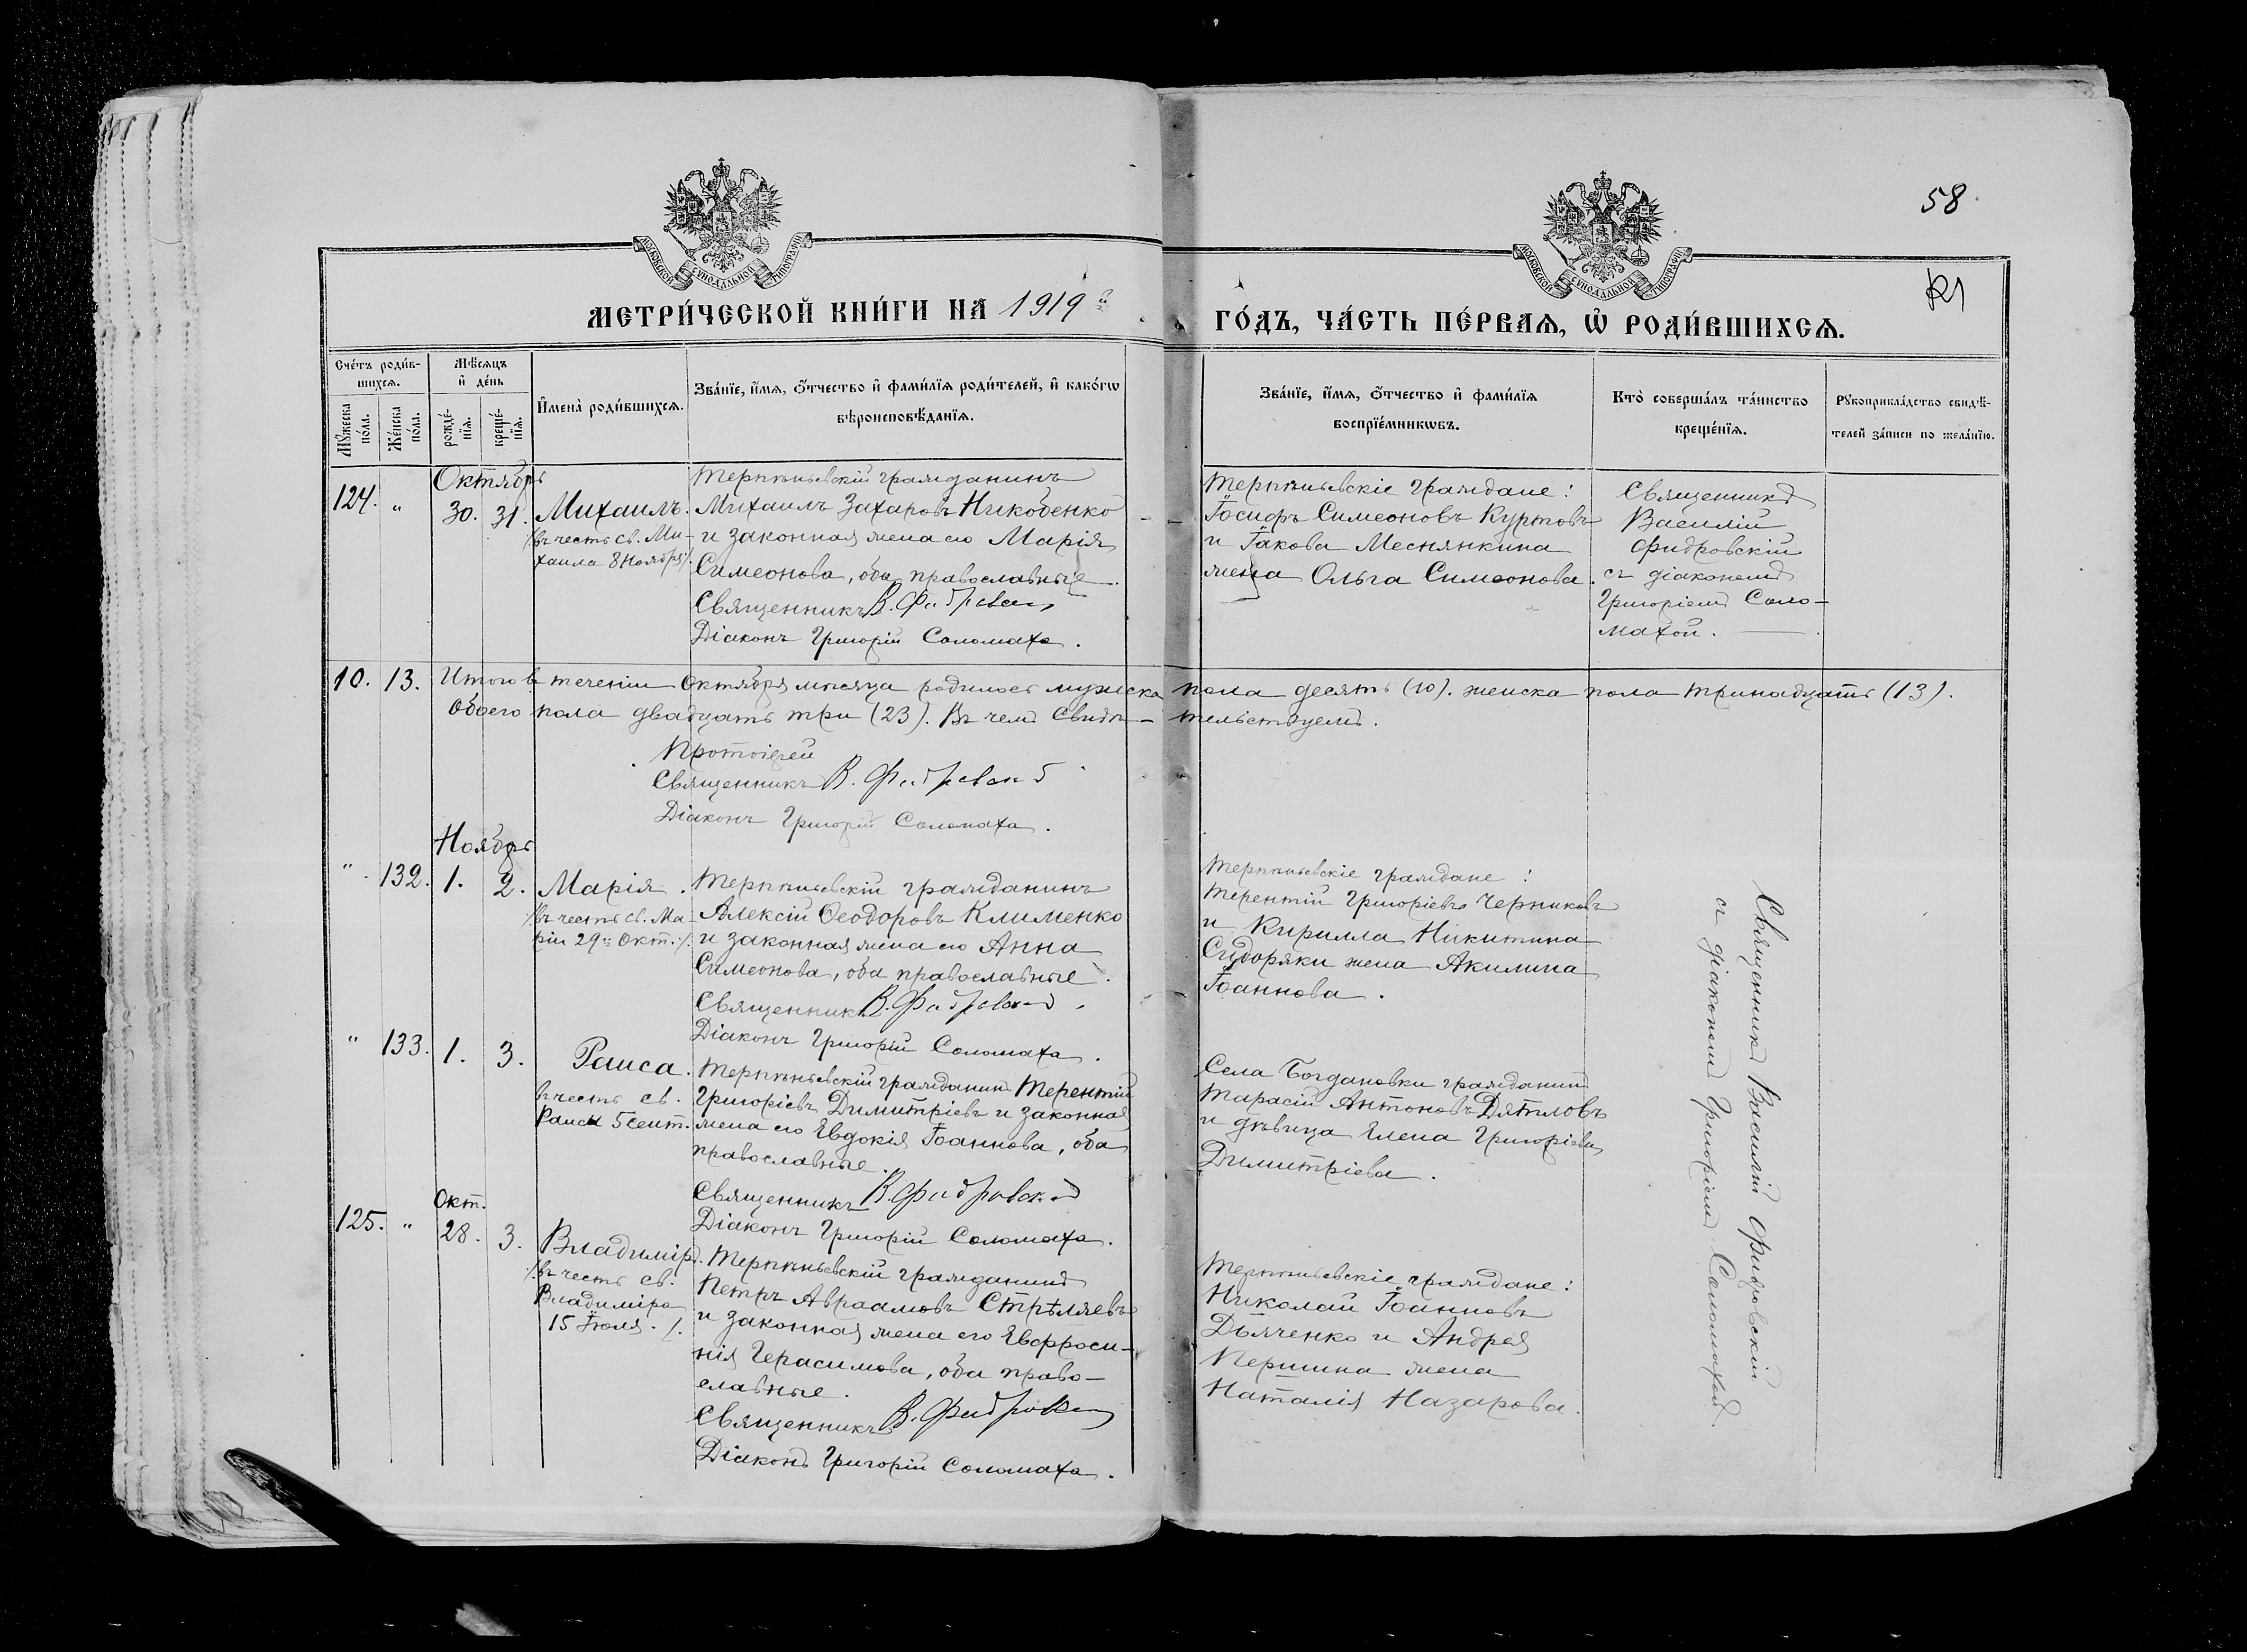 58
МОСКОВСКОЙ СѴНОДАЛЬНОЙ ТИПОГРАФІИ
МОСКОВСКОЙ СѴНОДАЛЬНОЙ ТИПОГРАФІИ
МЕТРИ́ЧЕСКОЙ КНИ́ГИ НА 1919 й
ГО́ДЪ, ЧА́СТЬ ПЕ́РВАѦ, Ѡ҆ РОДИ́ВШИХСѦ.
Сче́тъ роди́в-
шихсѧ.
Мѣ́сѧцъ
и҆ де́нь
Мꙋ́жеска по́ла.
Же́нска по́ла.
рожде́-
нїѧ.
креще́-
нїѧ.
И҆мена̀ роди́вшихсѧ.
Зва́нїе, и҆́мѧ, ѻ҆́тчество и҆ фами́лїѧ роди́телей, и҆ како́гѡ
вѣроисповѣ́данїѧ.
Зва́нїе, и҆́мѧ, ѻ҆́тчество и҆ фами́лїѧ
воспрїе́мникѡвъ.
Кто̀ соверша́лъ та́инство
креще́нїѧ.
Рꙋкоприкла́дство свидѣ́-
телей за́писи по жела́нїю.
Октябрь
124. " 30. 31. Михаилъ.
/:въ честь св. Ми-
хаила 8 Ноября:/.
Терпѣньевскій гражданинъ
Михаилъ Захаровъ Никобенко
и законная жена его Марія
Симеонова, оба православные.
Священникъ В. Фидровскій
Діаконъ Григорій Соломаха.
Терпѣньевскіе граждане:
Іосифъ Симеоновъ Куртовъ
и Іакова Меснянкина
жена Ольга Симеонова.
Священникъ
Василій
Фидровскій
съ діакономъ
Григоріемъ Соло-
махой.
10. 13. Итого въ теченіи Октября мѣсяца родилось мужска пола десять (10). женска пола тринадцать (13).
Обоего пола двадцать три (23). Въ чемъ свидѣ- тельствуемъ.
Протоіерей
Священникъ В. Фидровскій
Діаконъ Григорій Соломаха.
Ноябрь
" 132. 1. 2. Марія.
/:въ честь св. Ма-
ріи 29го Окт.:/.
Терпѣньевскій гражданинъ
Алексій Ѳеодоровъ Клименко
и законная жена его Анна
Симеонова, оба православные.
Священникъ В. Фидровскій
Діаконъ Григорій Соломаха.
Терпѣньевскіе граждане:
Терентій Григоріевъ Черниковъ
и Кирилла Никитина
Сидоряки жена Акилина
Іоаннова.
Священникъ Василій Фидровскій
съ діакономъ Григоріемъ Соломахой.
" 133. 1. 3. Раиса.
въ честь св.
Раисы 5 сент.
Терпѣньевскій гражданинъ Терентій
Григоріевъ Димитріевъ и законная
жена его Евдокія Іоаннова, оба
православные.
Священникъ В. Фидровскій
Діаконъ Григорій Соломаха.
Села Богдановки гражданинъ
Тарасій Антоновъ Дятловъ
и дѣвица Елена Григоріева
Димитріева.
Окт.
125. " 28. 3. Владиміръ.
/:въ честь св.
Владиміра
15 Іюля.:/.
Терпѣньевскій гражданинъ
Петръ Авраамовъ Стрѣляевъ
и законная жена его Евфроси-
нія Герасимова, оба право-
славные.
Священникъ В. Фидровскій
Діаконъ Григорій Соломаха.
Терпѣньевскіе граждане:
Николай Іоанновъ
Дьяченко и Андрея
Першина жена
Наталія Назарова.